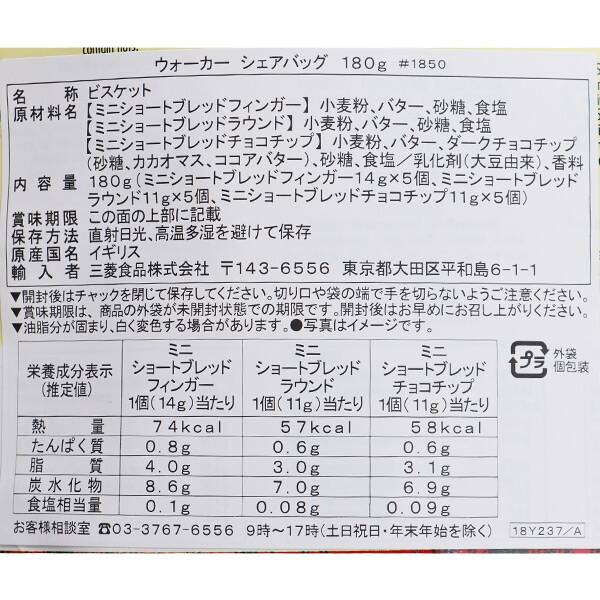 contain nuts.
ウォーカー シェアバッグ 180g #1850
名 称 ビスケット
原材料名 【ミニショートブレッドフィンガー】小麦粉、バター、砂糖、食塩
【ミニショートブレッドラウンド】小麦粉、バター、砂糖、食塩
【ミニショートブレッドチョコチップ】小麦粉、バター、ダークチョコチップ
(砂糖、カカオマス、ココアバター)、砂糖、食塩/乳化剤(大豆由来)、香料
内 容 量 180g(ミニショートブレッドフィンガー14g×5個、ミニショートブレッド
ラウンド11g×5個、ミニショートブレッドチョコチップ11g×5個)
賞味期限 この面の上部に記載
保存方法 直射日光、高温多湿を避けて保存
原産国名 イギリス
輸 入 者 三菱食品株式会社 〒143-6556 東京都大田区平和島6-1-1
▼開封後はチャックを閉じて保存してください。切り口や袋の端で手を切らないようご注意ください。
▼賞味期限は、商品の外袋が未開封状態での期限です。開封後はお早めにお召し上がりください。
▼油脂分が固まり、白く変色する場合があります。●写真はイメージです。
栄養成分表示(推定値) ミニショートブレッドフィンガー1個(14g)当たり ミニショートブレッドラウンド1個(11g)当たり ミニショートブレッドチョコチップ1個(11g)当たり
熱 量 74kcal 57kcal 58kcal
たんぱく質 0.8g 0.6g 0.6g
脂 質 4.0g 3.0g 3.1g
炭水化物 8.6g 7.0g 6.9g
食塩相当量 0.1g 0.08g 0.09g
プラ 外袋
個包装
お客様相談室 ☎03-3767-6556 9時～17時(土日祝日・年末年始を除く) 18Y237/A